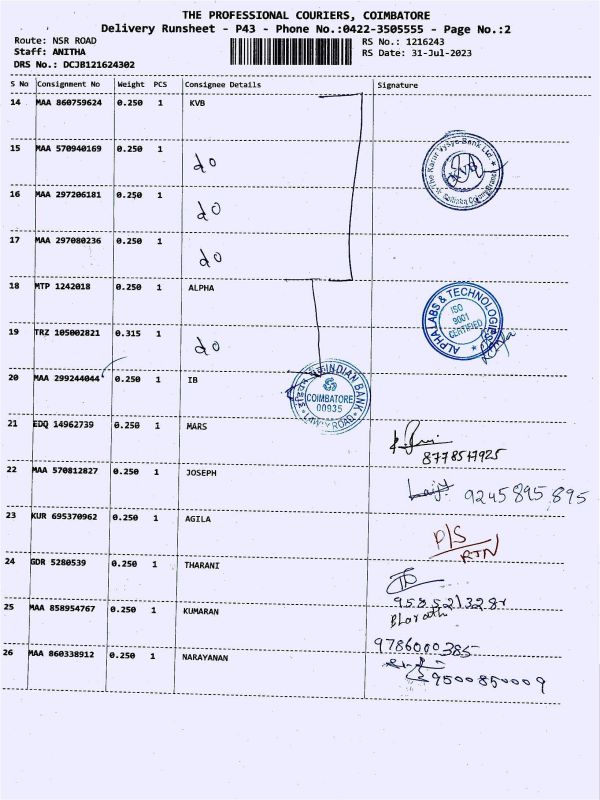 THE PROFESSIONAL COURIERS, COIMBATORE
Delivery Runsheet - P43 - Phone No.:0422-3505555 - Page No.:2
Route: NSR ROAD RS No.: 1216243
Staff: ANITHA RS Date: 31-Jul-2023
DRS No.: DCJB121624302
S No Consignment No Weight PCS Consignee Details Signature
14 MAA 860759624 0.250 1 KVB
15 MAA 570940169 0.250 1 do
The Karur Vysya Bank Ltd.
KVB
16 MAA 297206181 0.250 1 do
17 MAA 297080236 0.250 1 do
18 MTP 1242018 0.250 1 ALPHA
ALPHALABS & TECHNOLOGIES
ISO
9001
CERTIFIED
19 TRZ 105002821 0.315 1 do
20 MAA 299244044 0.250 1 IB
INDIAN BANK
COIMBATORE
00935
LAWLY ROAD
21 EDQ 14962739 0.250 1 MARS
8778517925
22 MAA 570812827 0.250 1 JOSEPH
9245895895
23 KUR 695370962 0.250 1 AGILA
P/S
RTN
24 GDR 5280539 0.250 1 THARANI
25 MAA 858954767 0.250 1 KUMARAN
Bharathi
9786000385
26 MAA 860338912 0.250 1 NARAYANAN
9500850009